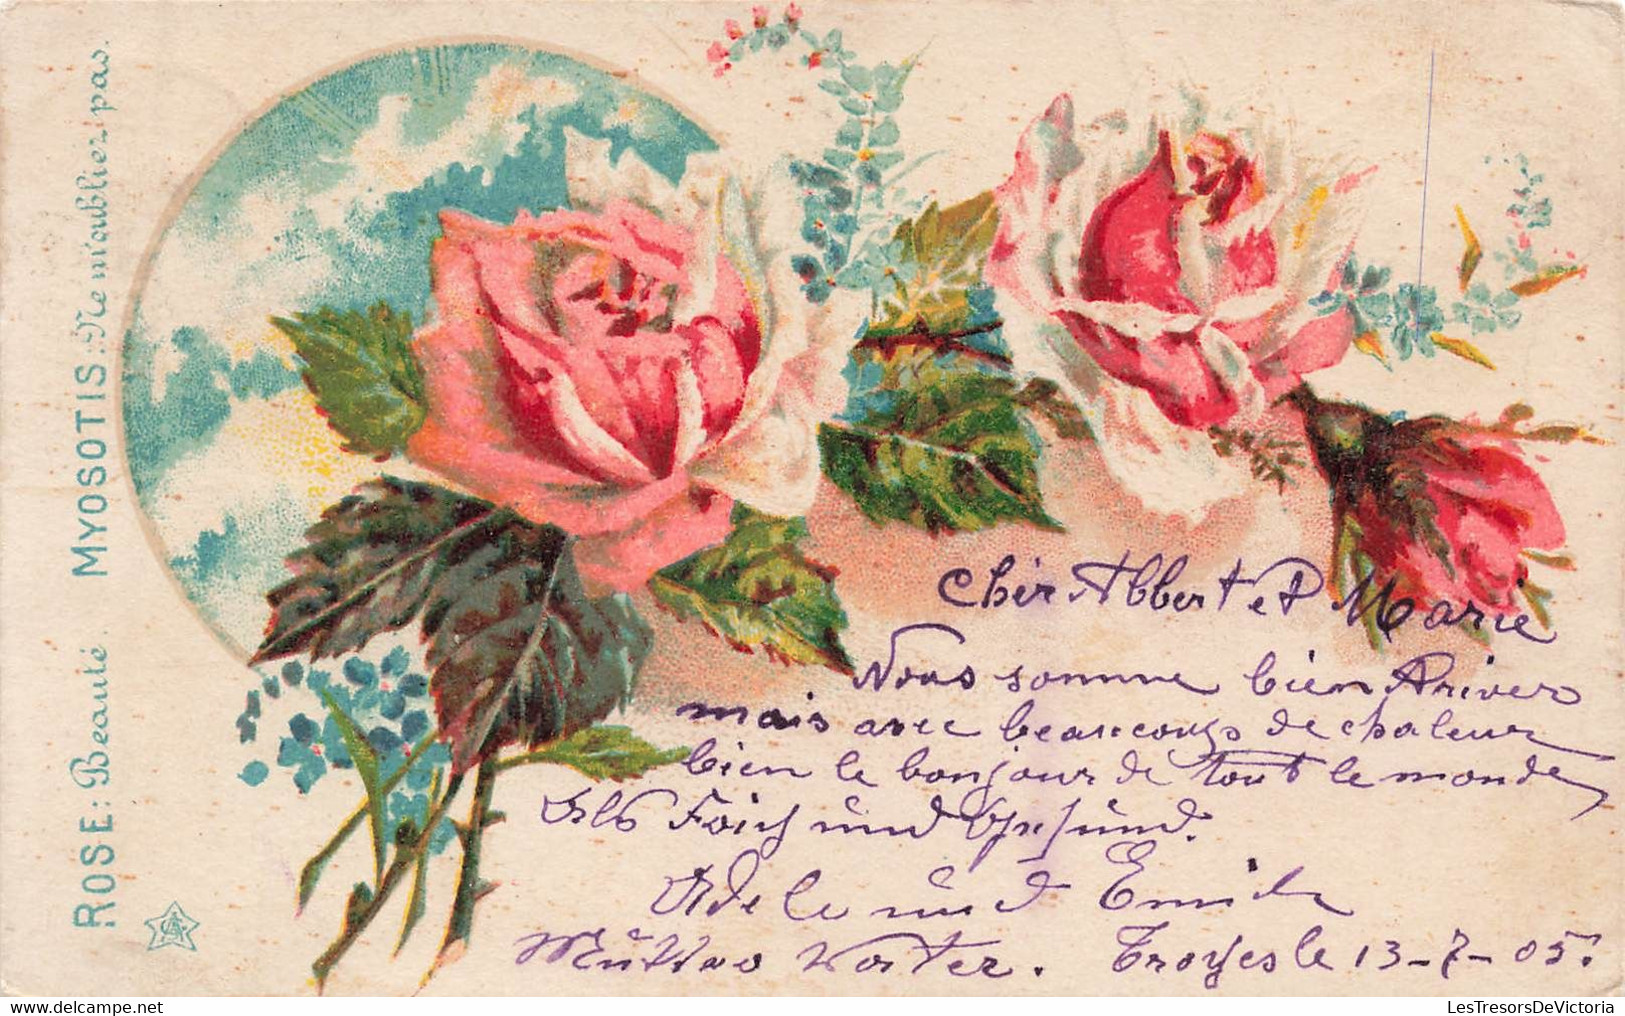 ROSE: Beauté. MYOSOTIS: Ne m'oubliez pas.
Chèr Albbert et Marie
Nous somme bien Ariver
mais avec beaucoups de chaleur
bien le bonjour de tout le monde
und Gesund.
Adele und Emile
Troyes le 13-7-05.
LesTresorsDeVictoria